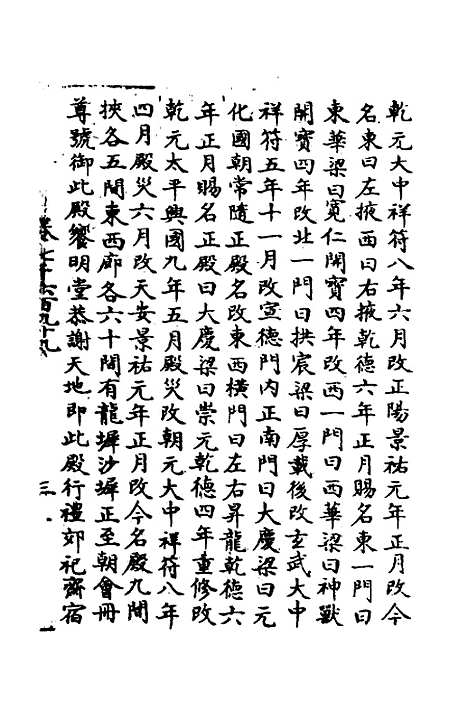 乾元大中祥符八年六月改正陽景祐元年正月改今
名東曰左掖西曰右掖乾德六年正月賜名東一門曰
東華梁曰寬仁開寶四年改西一門曰西華梁曰神獸
開寶四年改北一門曰拱宸梁曰厚載後改玄武大中
祥符五年十一月改宣德門內正南門曰大慶梁曰元
化國朝常隨正殿名改東西橫門曰左右昇龍乾德六
年正月賜名正殿曰大慶梁曰崇元乾德四年重修改
乾元太平興國九年五月殿災改朝元大中祥符八年
四月殿災六月改天安景祐元年正月改今名殿九間
挾各五間東西廊各六十間有龍墀沙墀正至朝會冊
尊號御此殿饗明堂恭謝天地即此殿行禮郊祀齋宿
卷七千六百九十九
三